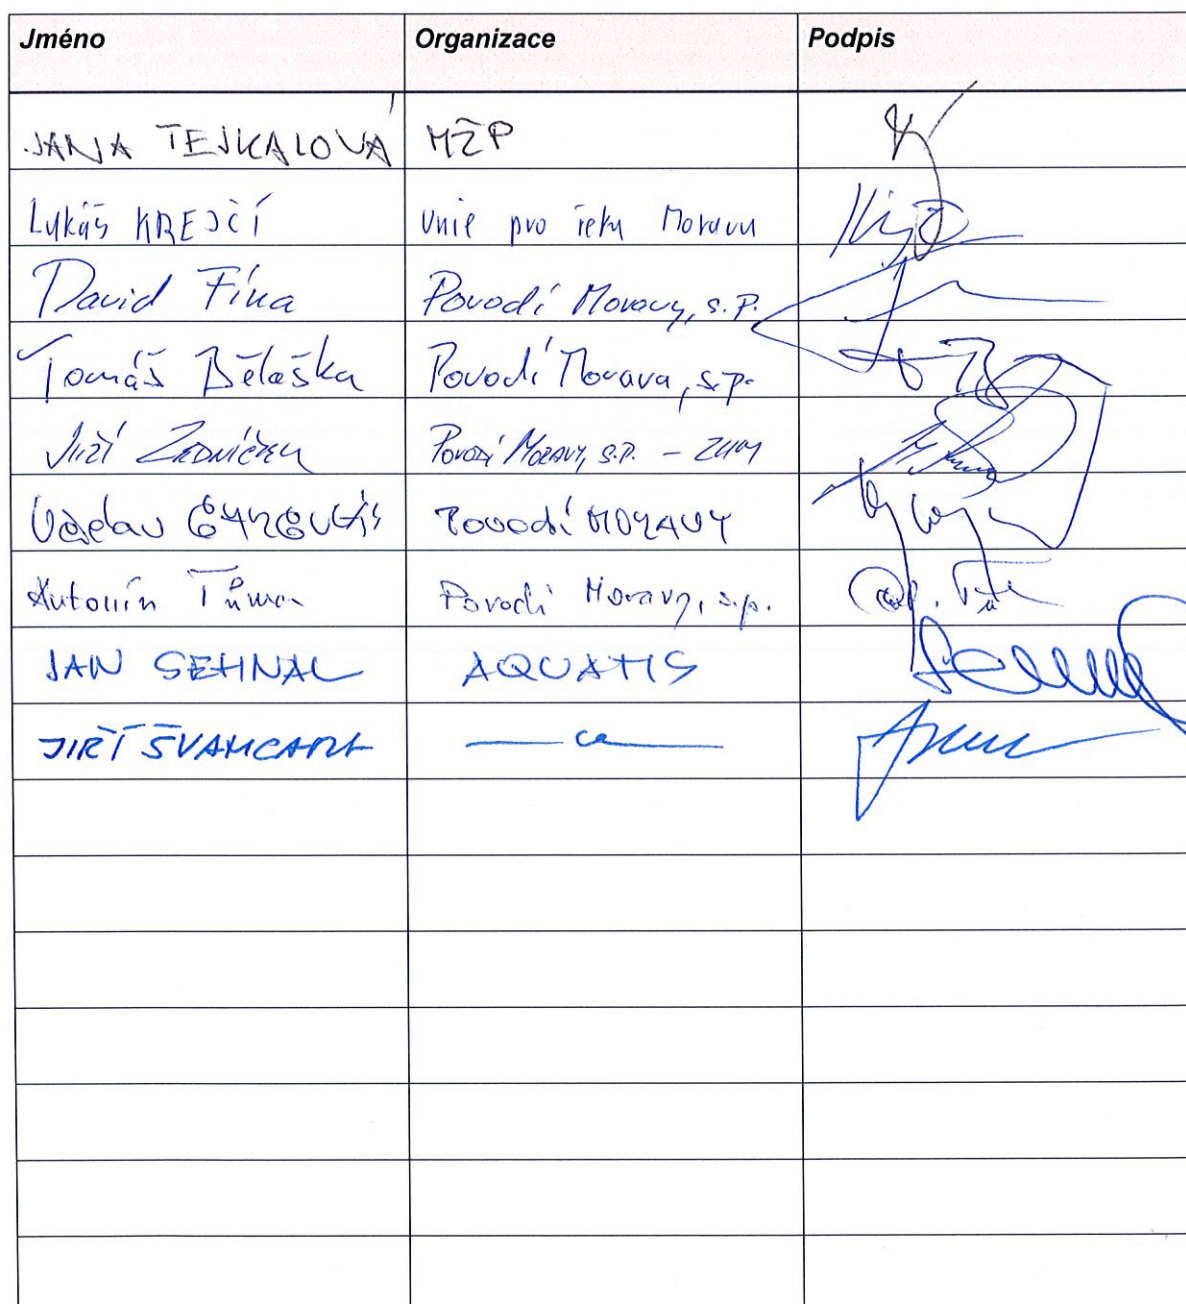 Jméno Organizace Podpis
JANA TEJKALOVÁ MŽP
Lukáš KREJČÍ Unie pro řeku Moravu
David Fína Povodí Moravy, s.p.
Tomáš Běláška Povodí Morava, s.p.
Jiří Zedníček Povodí Moravy, s.p. - ZUM
Václav Povodí MORAVY
Antonín Tůma Povodí Moravy, s.p.
JAN SEHNAL AQUATIS
JIŘÍ ŠVANCARA